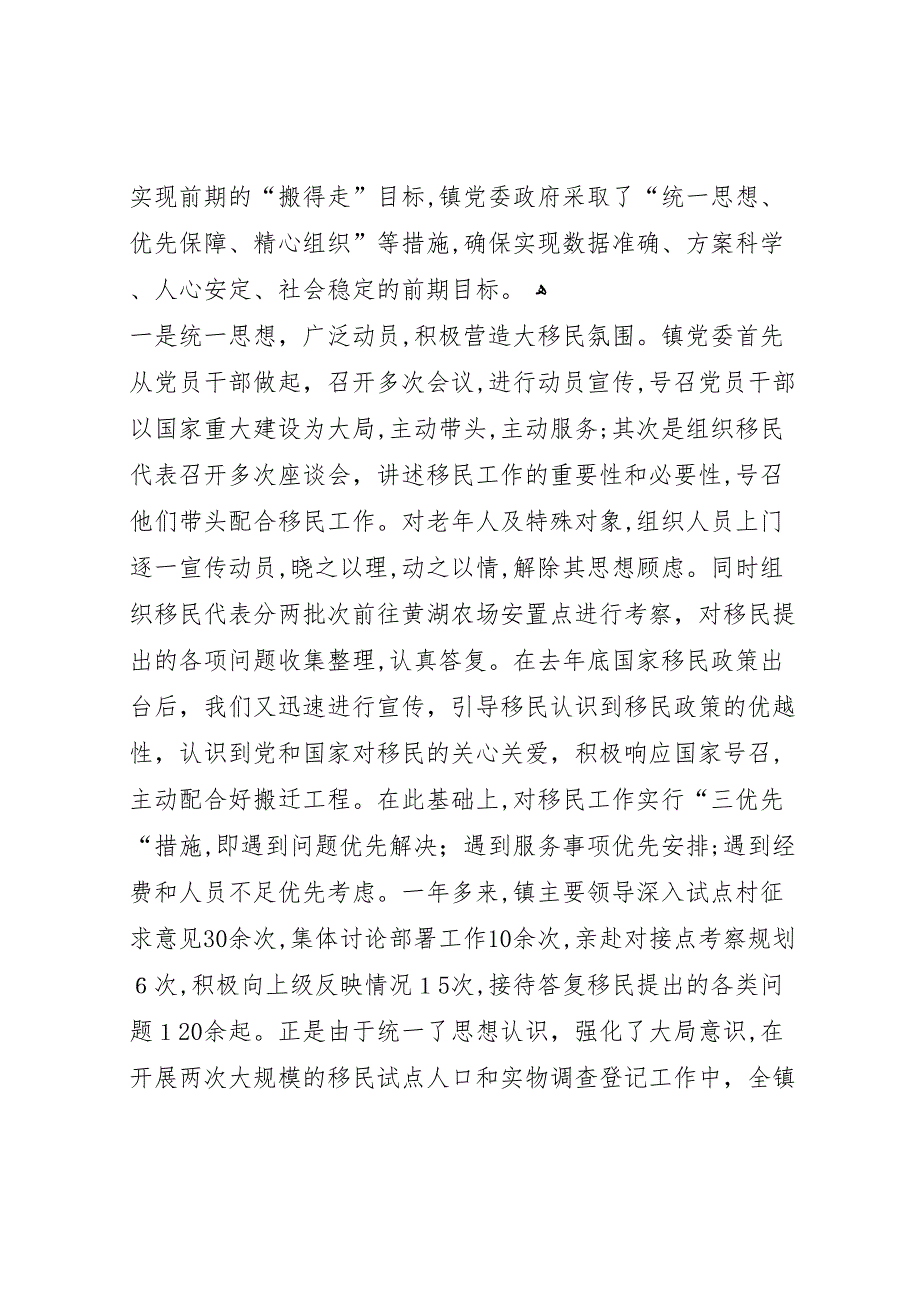 实现前期的“搬得走”目标,镇党委政府采取了“统一思想、
优先保障、精心组织”等措施,确保实现数据准确、方案科学
、人心安定、社会稳定的前期目标。 ﻫ
一是统一思想，广泛动员,积极营造大移民氛围。镇党委首先
从党员干部做起，召开多次会议,进行动员宣传,号召党员干部
以国家重大建设为大局,主动带头,主动服务;其次是组织移民
代表召开多次座谈会，讲述移民工作的重要性和必要性,号召
他们带头配合移民工作。对老年人及特殊对象,组织人员上门
逐一宣传动员,晓之以理,动之以情,解除其思想顾虑。同时组
织移民代表分两批次前往黄湖农场安置点进行考察，对移民提
出的各项问题收集整理,认真答复。在去年底国家移民政策出
台后，我们又迅速进行宣传，引导移民认识到移民政策的优越
性，认识到党和国家对移民的关心关爱，积极响应国家号召,
主动配合好搬迁工程。在此基础上,对移民工作实行“三优先
“措施,即遇到问题优先解决；遇到服务事项优先安排;遇到经
费和人员不足优先考虑。一年多来,镇主要领导深入试点村征
求意见30余次,集体讨论部署工作10余次,亲赴对接点考察规划
６次,积极向上级反映情况１5次,接待答复移民提出的各类问
题１20余起。正是由于统一了思想认识，强化了大局意识,在
开展两次大规模的移民试点人口和实物调查登记工作中，全镇